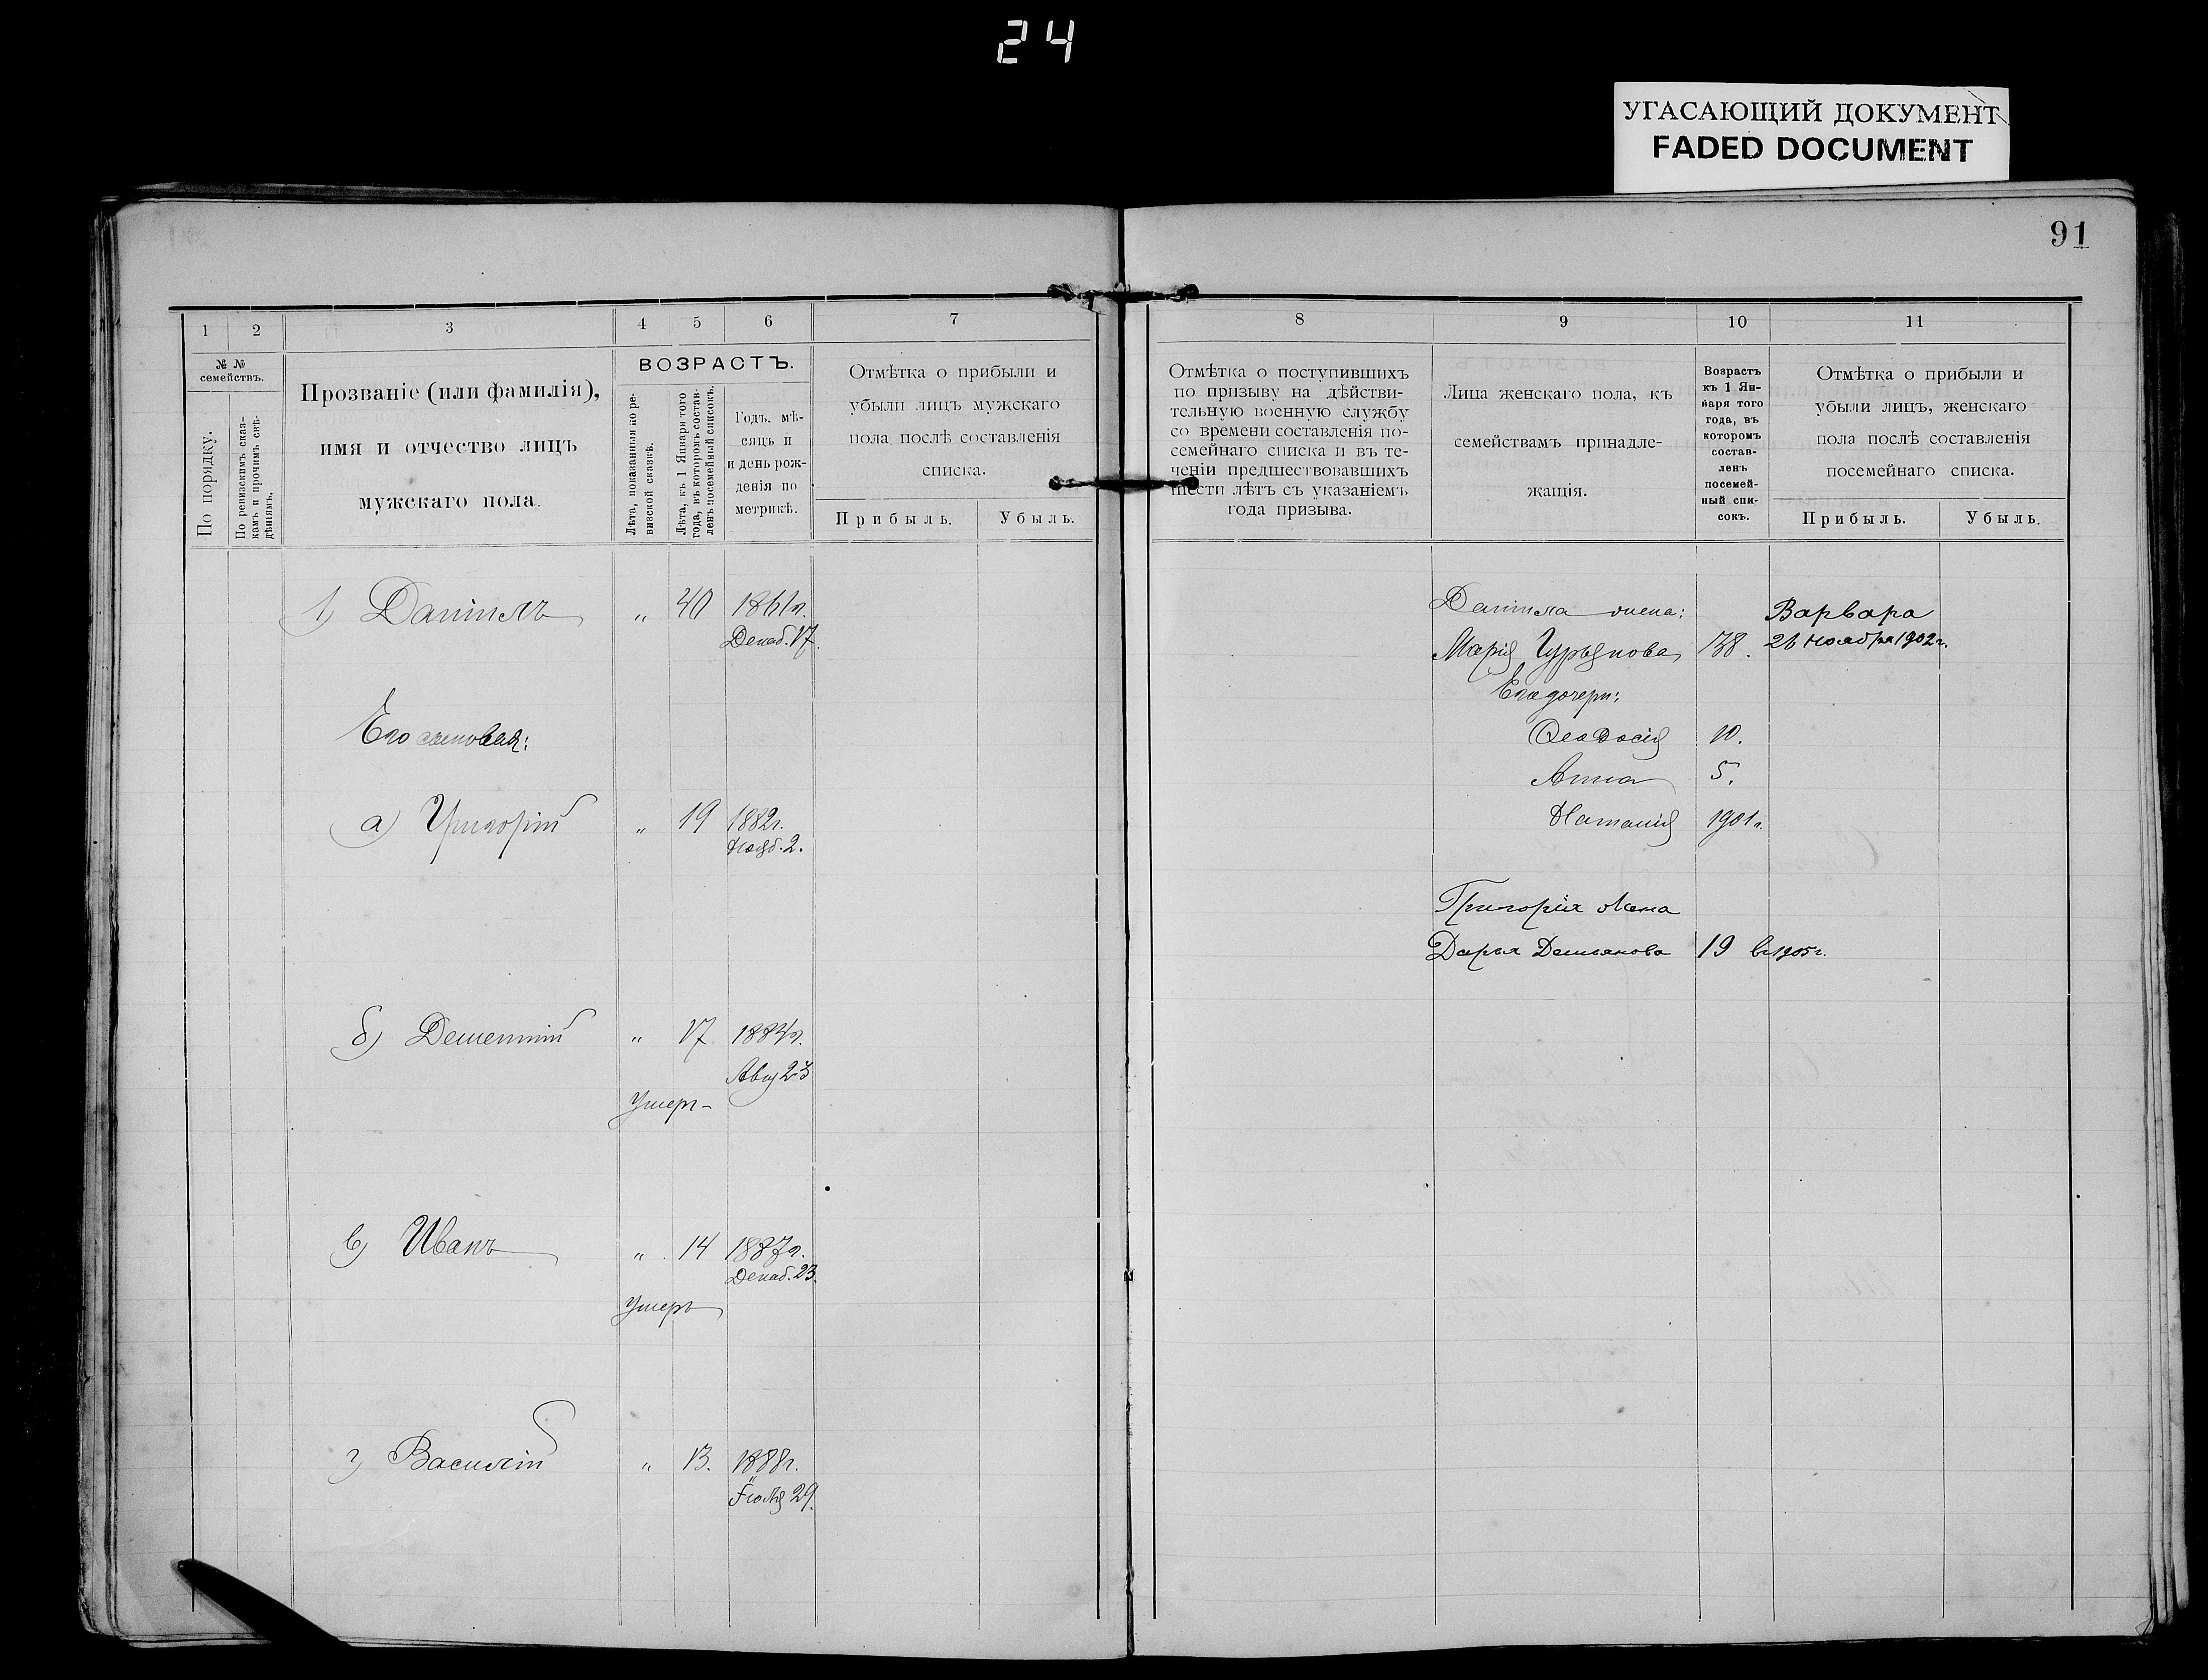 24
УГАСАЮЩИЙ ДОКУМЕНТ
FADED DOCUMENT
91
1 2 3 4 5 6 7
№ №
семействъ.
По порядку.
По ревизскимъ сказ-
камъ и прочимъ свѣ-
дѣніямъ.
Прозваніе (или фамилія),
имя и отчество лицъ
мужскаго пола.
ВОЗРАСТЪ.
Лѣта, показанныя по ре-
визской сказкѣ.
Лѣта, къ 1 Января того
года, въ которомъ состав-
ленъ посемейный списокъ.
Годъ, мѣ-
сяцъ и
и день рож-
денія по
метрикѣ.
Отмѣтка о прибыли и
убыли лицъ мужскаго
пола послѣ составленія
списка.
Прибыль. Убыль.
1) Даніилъ „ 40 1861г.
Декаб. 17.
Его сыновья:
а) Григорій „ 19 1882г.
Нояб. 2.
б) Дементій „ 17 1884г.
Авг 23
Умеръ
в) Иванъ „ 14 1887г.
Декаб. 23.
Умеръ
г) Василій „ 13. 1888г.
Іюля 29.
8 9 10 11
Отмѣтка о поступившихъ
по призыву на дѣйстви-
тельную военную службу
со времени составленія по-
семейнаго списка и въ те-
ченіи предшествовавшихъ
шести лѣтъ съ указаніемъ
года призыва.
Лица женскаго пола, къ
семействамъ принадле-
жащія.
Возрастъ
къ 1 Ян-
наря того
года, въ
которомъ
состав-
ленъ
посемей-
ный спи-
сокъ.
Отмѣтка о прибыли и
убыли лицъ, женскаго
пола послѣ составленія
посемейнаго списка.
Прибыль. Убыль.
Даніила жена: Варвара
Марія Гурьянова 38. 26 Ноября 1902г.
Его дочери:
Ѳеодосія 10.
Анна 5.
Наталія 1901г.
Григорія жена
Дарья Демьянова 19 въ 1905г.